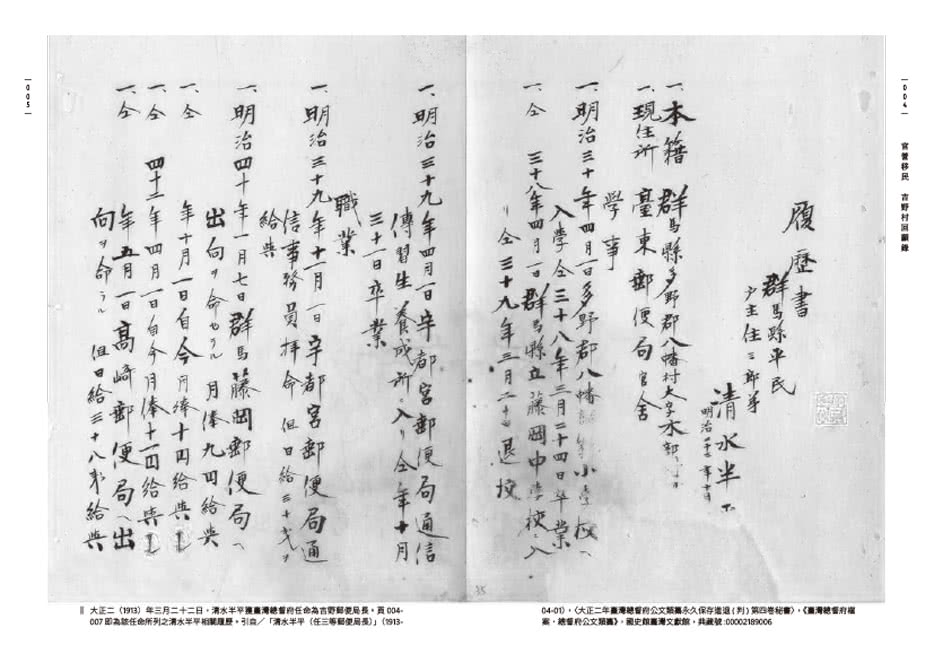 004
官營移民　吉野村回顧錄
履歷書
群馬縣平民
戶主住三郎弟
清水半
明治
一、本籍　群馬縣多野郡八幡村大字木部
一、現住所　臺東郵便局官舍
學事
一、明治三十年四月一日多野郡八幡小學校ヘ
入學仝三十八年三月二十四日卒業
一、仝　三十八年四月一日群馬縣立藤岡中學校ニ入
リ仝三十九年三月二十日退校
一、明治三十九年四月一日宇都宮郵便局通信
傳習生養成所ニ入リ仝年十月
三十一日卒業
職業
一、明治三十九年十一月一日宇都宮郵便局通
信事務員拝命　但日給三十弐ヲ
給與
一、明治四十年一月七日群馬藤岡郵便局ヘ
出向ヲ命セラル　月俸九円給與
一、仝　年十月一日自今月俸十円給與
一、仝　四十二年四月一日自今月俸十一円給與
一、仝　年五月一日高崎郵便局ヘ出
向ヲ命セラル　但日給三十八銭給與
35
005
‖ 大正二（1913）年三月二十二日，清水半平獲臺灣總督府任命為吉野郵便局長。頁 004-
007 即為該任命所列之清水半平相關履歷。引自／「清水半平（任三等郵便局長）」（1913-
04-01），〈大正二年臺灣總督府公文類纂永久保存進退（判）第四卷秘書〉，《臺灣總督府檔
案．總督府公文類纂》，國史館臺灣文獻館，典藏號:00002189006